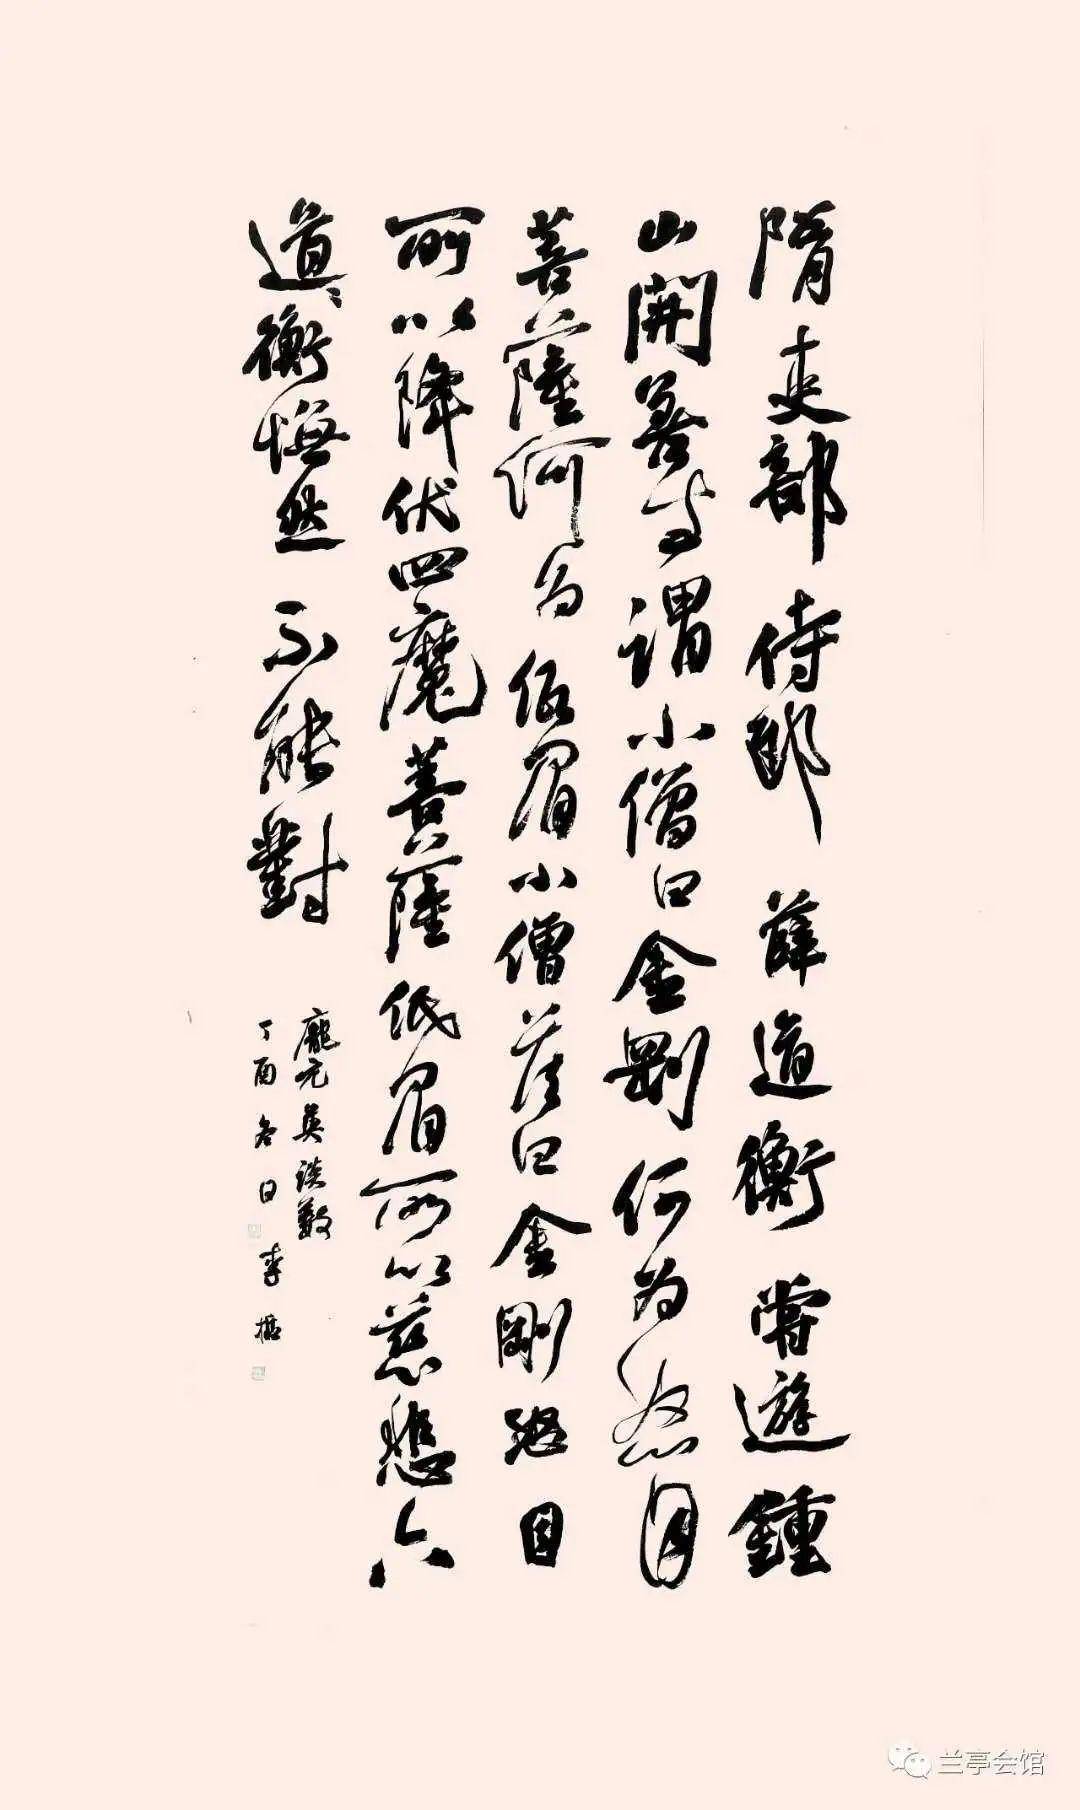 隋吏部侍郎薛道衡嘗遊鍾
山開善寺謂小僧曰金剛何為怒目
菩薩何為低眉小僧答曰金剛怒目
所以降伏四魔菩薩低眉所以慈悲六
道道衡憮然不能對
龐元英談藪
丁酉冬日李
兰亭会馆